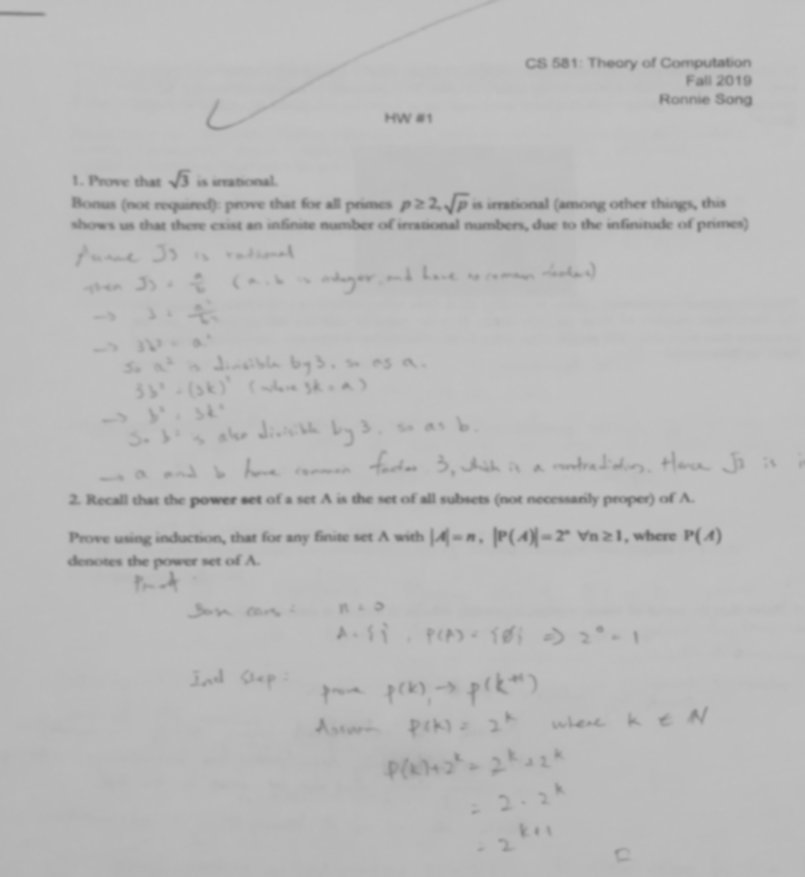 CS 581: Theory of Computation
Fall 2019
Ronnie Song
HW #1
1. Prove that √3 is irrational.
Bonus (not required): prove that for all primes p ≥ 2, √p is irrational (among other things, this
shows us that there exist an infinite number of irrational numbers, due to the infinitude of primes)
Assume √3 is rational
then √3 = a/b (a, b is integer, and have no common factors)
→ 3 = a²/b²
→ 3b² = a²
So a² is divisible by 3, so as a.
3b² = (3k)² (where 3k = a)
→ b² = 3k²
So b² is also divisible by 3, so as b.
→ a and b have common factor 3, which is a contradiction. Hence √3 is
2. Recall that the power set of a set A is the set of all subsets (not necessarily proper) of A.
Prove using induction, that for any finite set A with |A| = n, |P(A)| = 2ⁿ ∀n ≥ 1, where P(A)
denotes the power set of A.
Proof
Base case: n = 0
A = {}, P(A) = {∅} ⇒ 2⁰ = 1
Ind Step: prove p(k) → p(k+1)
Assume P(k) = 2ᵏ where k ∈ N
P(k)+2ᵏ = 2ᵏ + 2ᵏ
= 2 · 2ᵏ
= 2ᵏ⁺¹
□